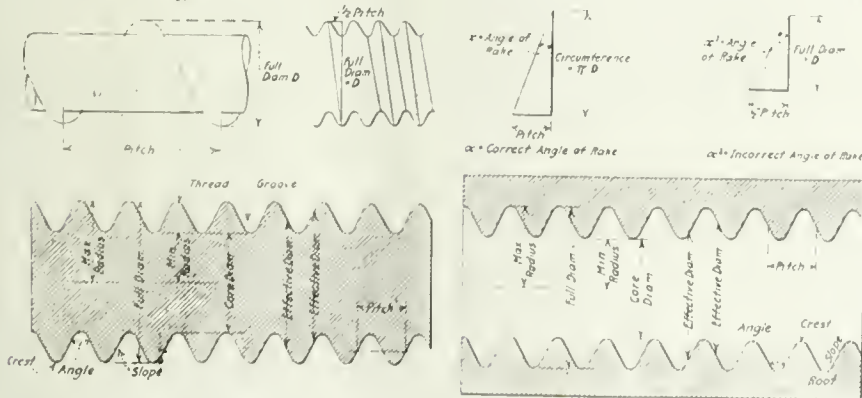 ½ Pitch
Full
Diam D
Full
Diam
= D
Pitch
x = Angle of
Rake
Circumference
= π D
Pitch
α = Correct Angle of Rake
x¹ = Angle
of Rake
Full Diam
= D
½ Pitch
α² = Incorrect Angle of Rake
Thread Groove
Max
Radius
Full Diam
Min
Radius
Core Diam
Effective Diam
Effective Diam
Pitch
Crest
Angle
Slope
Max
Radius
Full Diam
Min
Radius
Core
Diam
Effective Diam
Effective Diam
Pitch
Angle
Crest
Slope
Root